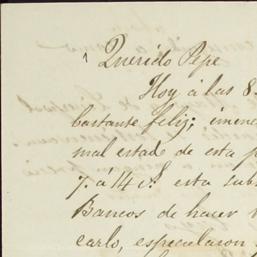 Querido Pepe
Hoy á las 8
bastante feliz;
mal estado de esta p
7. á 14 c/. esta sub
Bancos de hacer
carlo, especularon